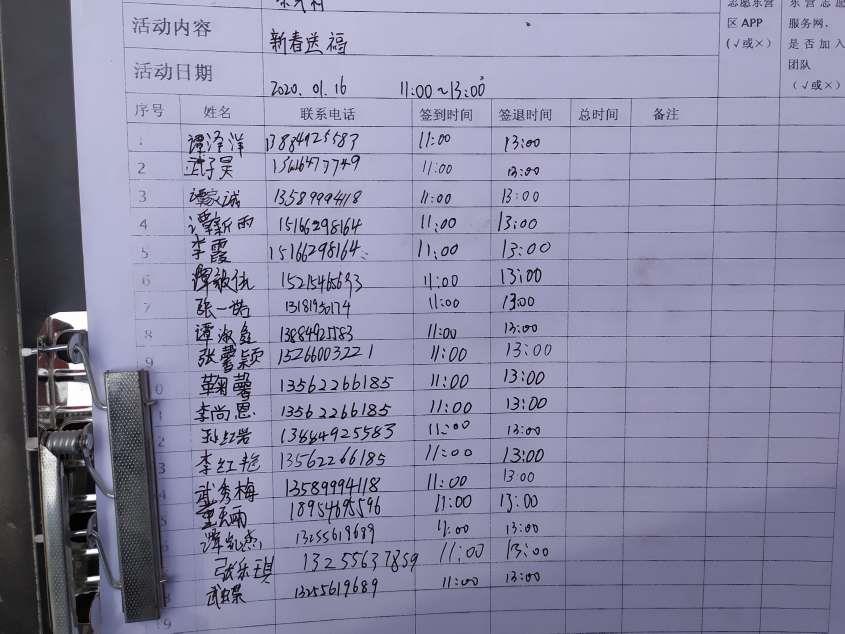 志愿东营 东营志愿
区APP 服务网、
(√或×) 是否加入
团队
(√或×)
活动内容 新春送福
活动日期 2020.01.16 11:00~13:00
序号 姓名 联系电话 签到时间 签退时间 总时间 备注
1 谭泽洋 13884925583 11:00 13:00
2 武子昊 15616477749 11:00 13:00
3 谭家诚 13589994118 11:00 13:00
4 谭新雨 15166298164 11:00 13:00
5 李霞 15166298164 11:00 13:00
6 11:00 13:00
7 张一诺 11:00 13:00
8 谭淑鑫 11:00 13:00
9 张馨颖 15266003221 11:00 13:00
0 鞠馨 13562266185 11:00 13:00
1 李尚恩 13562266185 11:00 13:00
2 13884925583 11:00 13:00
3 李红艳 13562266185 11:00 13:00
4 武秀梅 13589994118 11:00 13:00
5 18954695596 11:00 13:00
6 13255619689 11:00 13:00
张乐琪 13255637859 11:00 13:00
8 13255619689 11:00 13:00
9